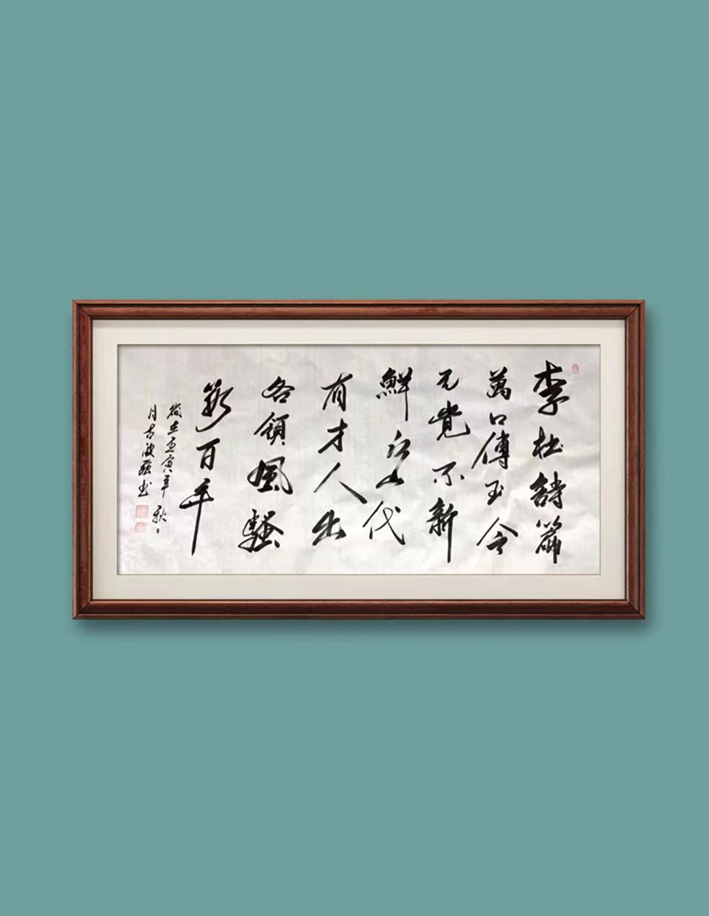 李杜詩篇
萬口傳至今
已覺不新
鮮江山代
有才人出
各領風騷
數百年
歲在壬寅年秋
月 书